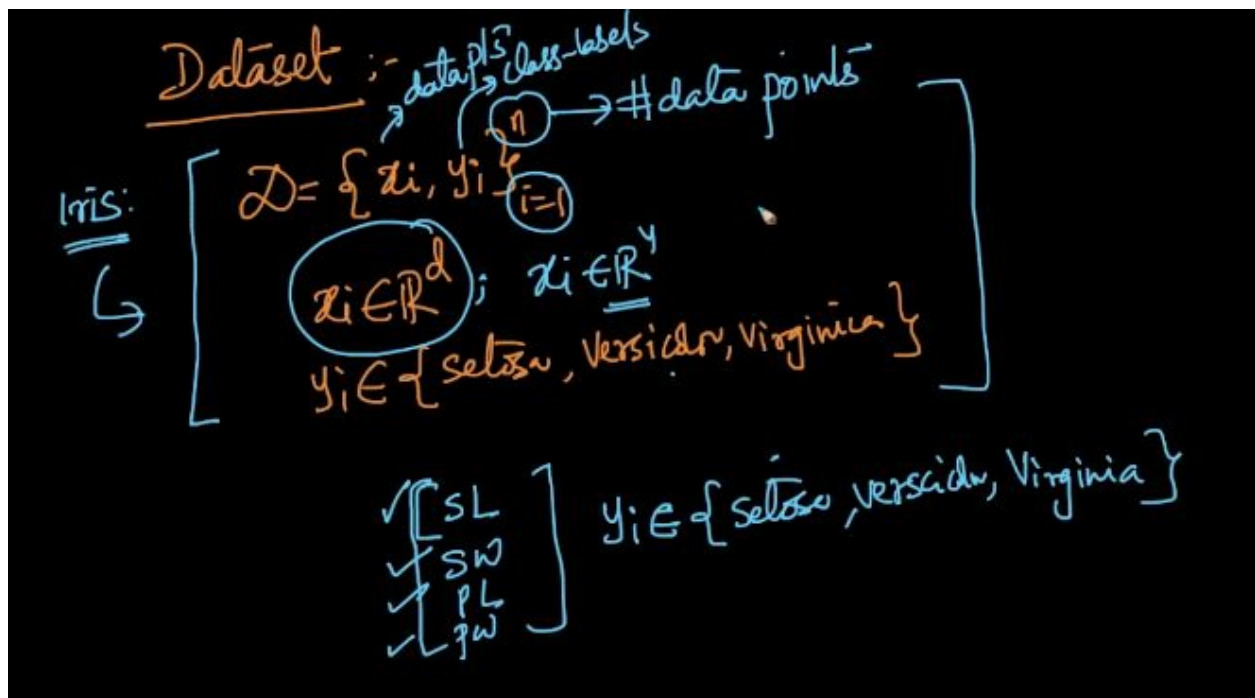 Dataset :-
data pts class-labels
n → # data points
Iris:
D = { xi, yi }
i=1
xi ∈ ℝ^d ; xi ∈ ℝ^4
yi ∈ { setosa, versicolor, virginica }
SL
SW
PL
PW
yi ∈ { setosa, versicolor, Virginia }